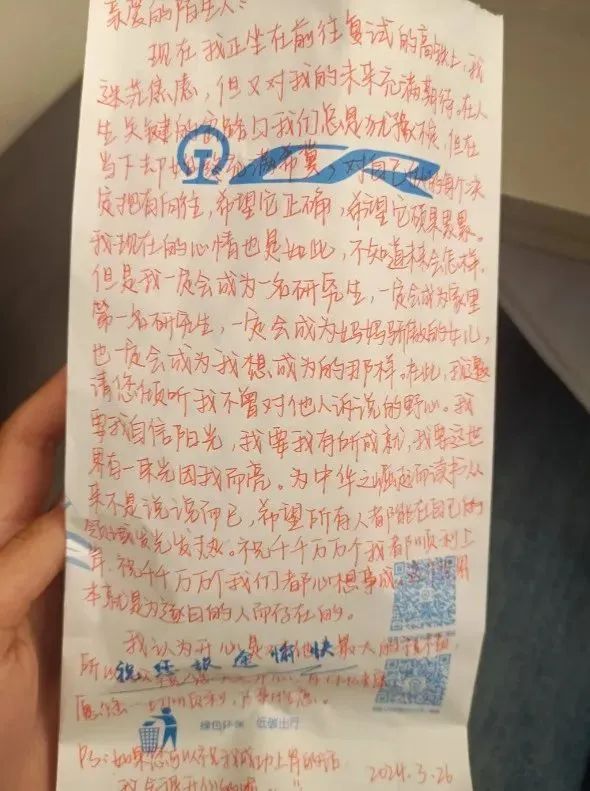 亲爱的陌生人:
现在我正坐在前往复试的高铁上,我
迷茫焦虑,但又对我的未来充满期待。在人
生关键的路口我们总是犹豫不决,但在
当下却满希冀,对自己的每个决
定抱有向往,希望它正确,希望它硕果累累。
我现在的心情也是如此,不知道未来会怎样。
但是我一定会成为一名研究生,一定会成为家里
第一名研究生,一定会成为妈妈骄傲的女儿,
也一定会成为我想成为的那样。在此,我
请您倾听我不曾对他人诉说的野心。我
要我自信阳光,我要我有所成就,我要这世
界有一束光因我而亮。为中华之崛起而读书从
来不是说说而已,希望所有人都能在自己的
领域发光发热。祝千千万万个我都顺利上
岸,祝千千万万个我们都心想事成,
本就是为逐日的人而存在的。
我认为开心是最大的
所以祝您旅途愉快
愿您一切顺利,
绿色环保 低碳出行
PS:如果您可以祝我成功上岸的话
我会很开心的
2024.3.26